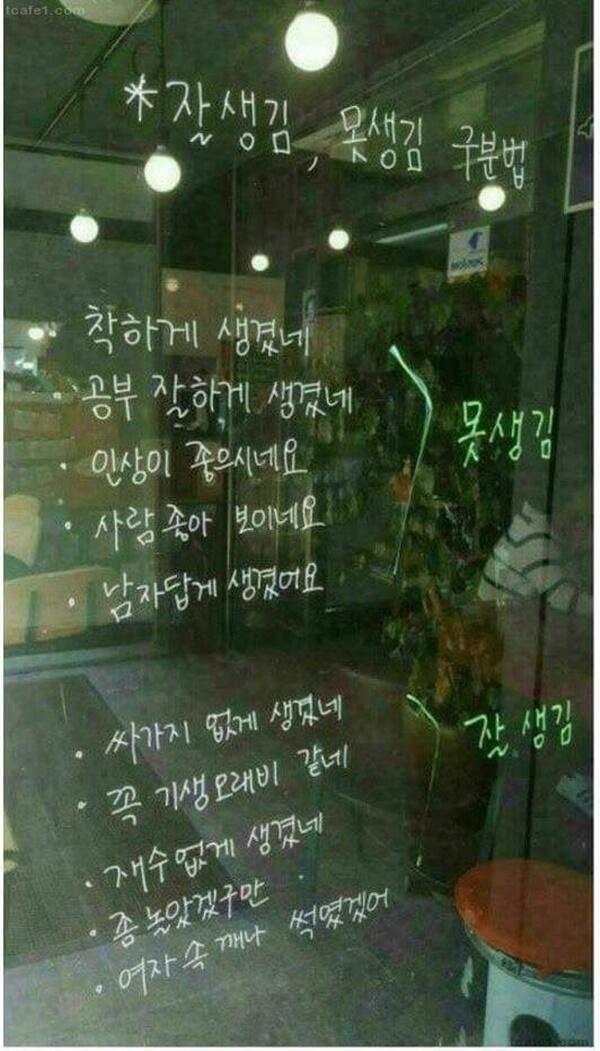 tcafe1.com
*잘생김, 못생김 구분법
착하게 생겼네
· 공부 잘하게 생겼네
· 인상이 좋으시네요
· 사람좋아 보이네요
· 남자답게 생겼어요
못생김
· 싸가지 없게 생겼네
· 꼭 기생오래비 같네
· 재수없게 생겼네
· 좀 놀았겠구만
· 여자 속 깨나 썩였겠어
잘생김
tcafe1.com